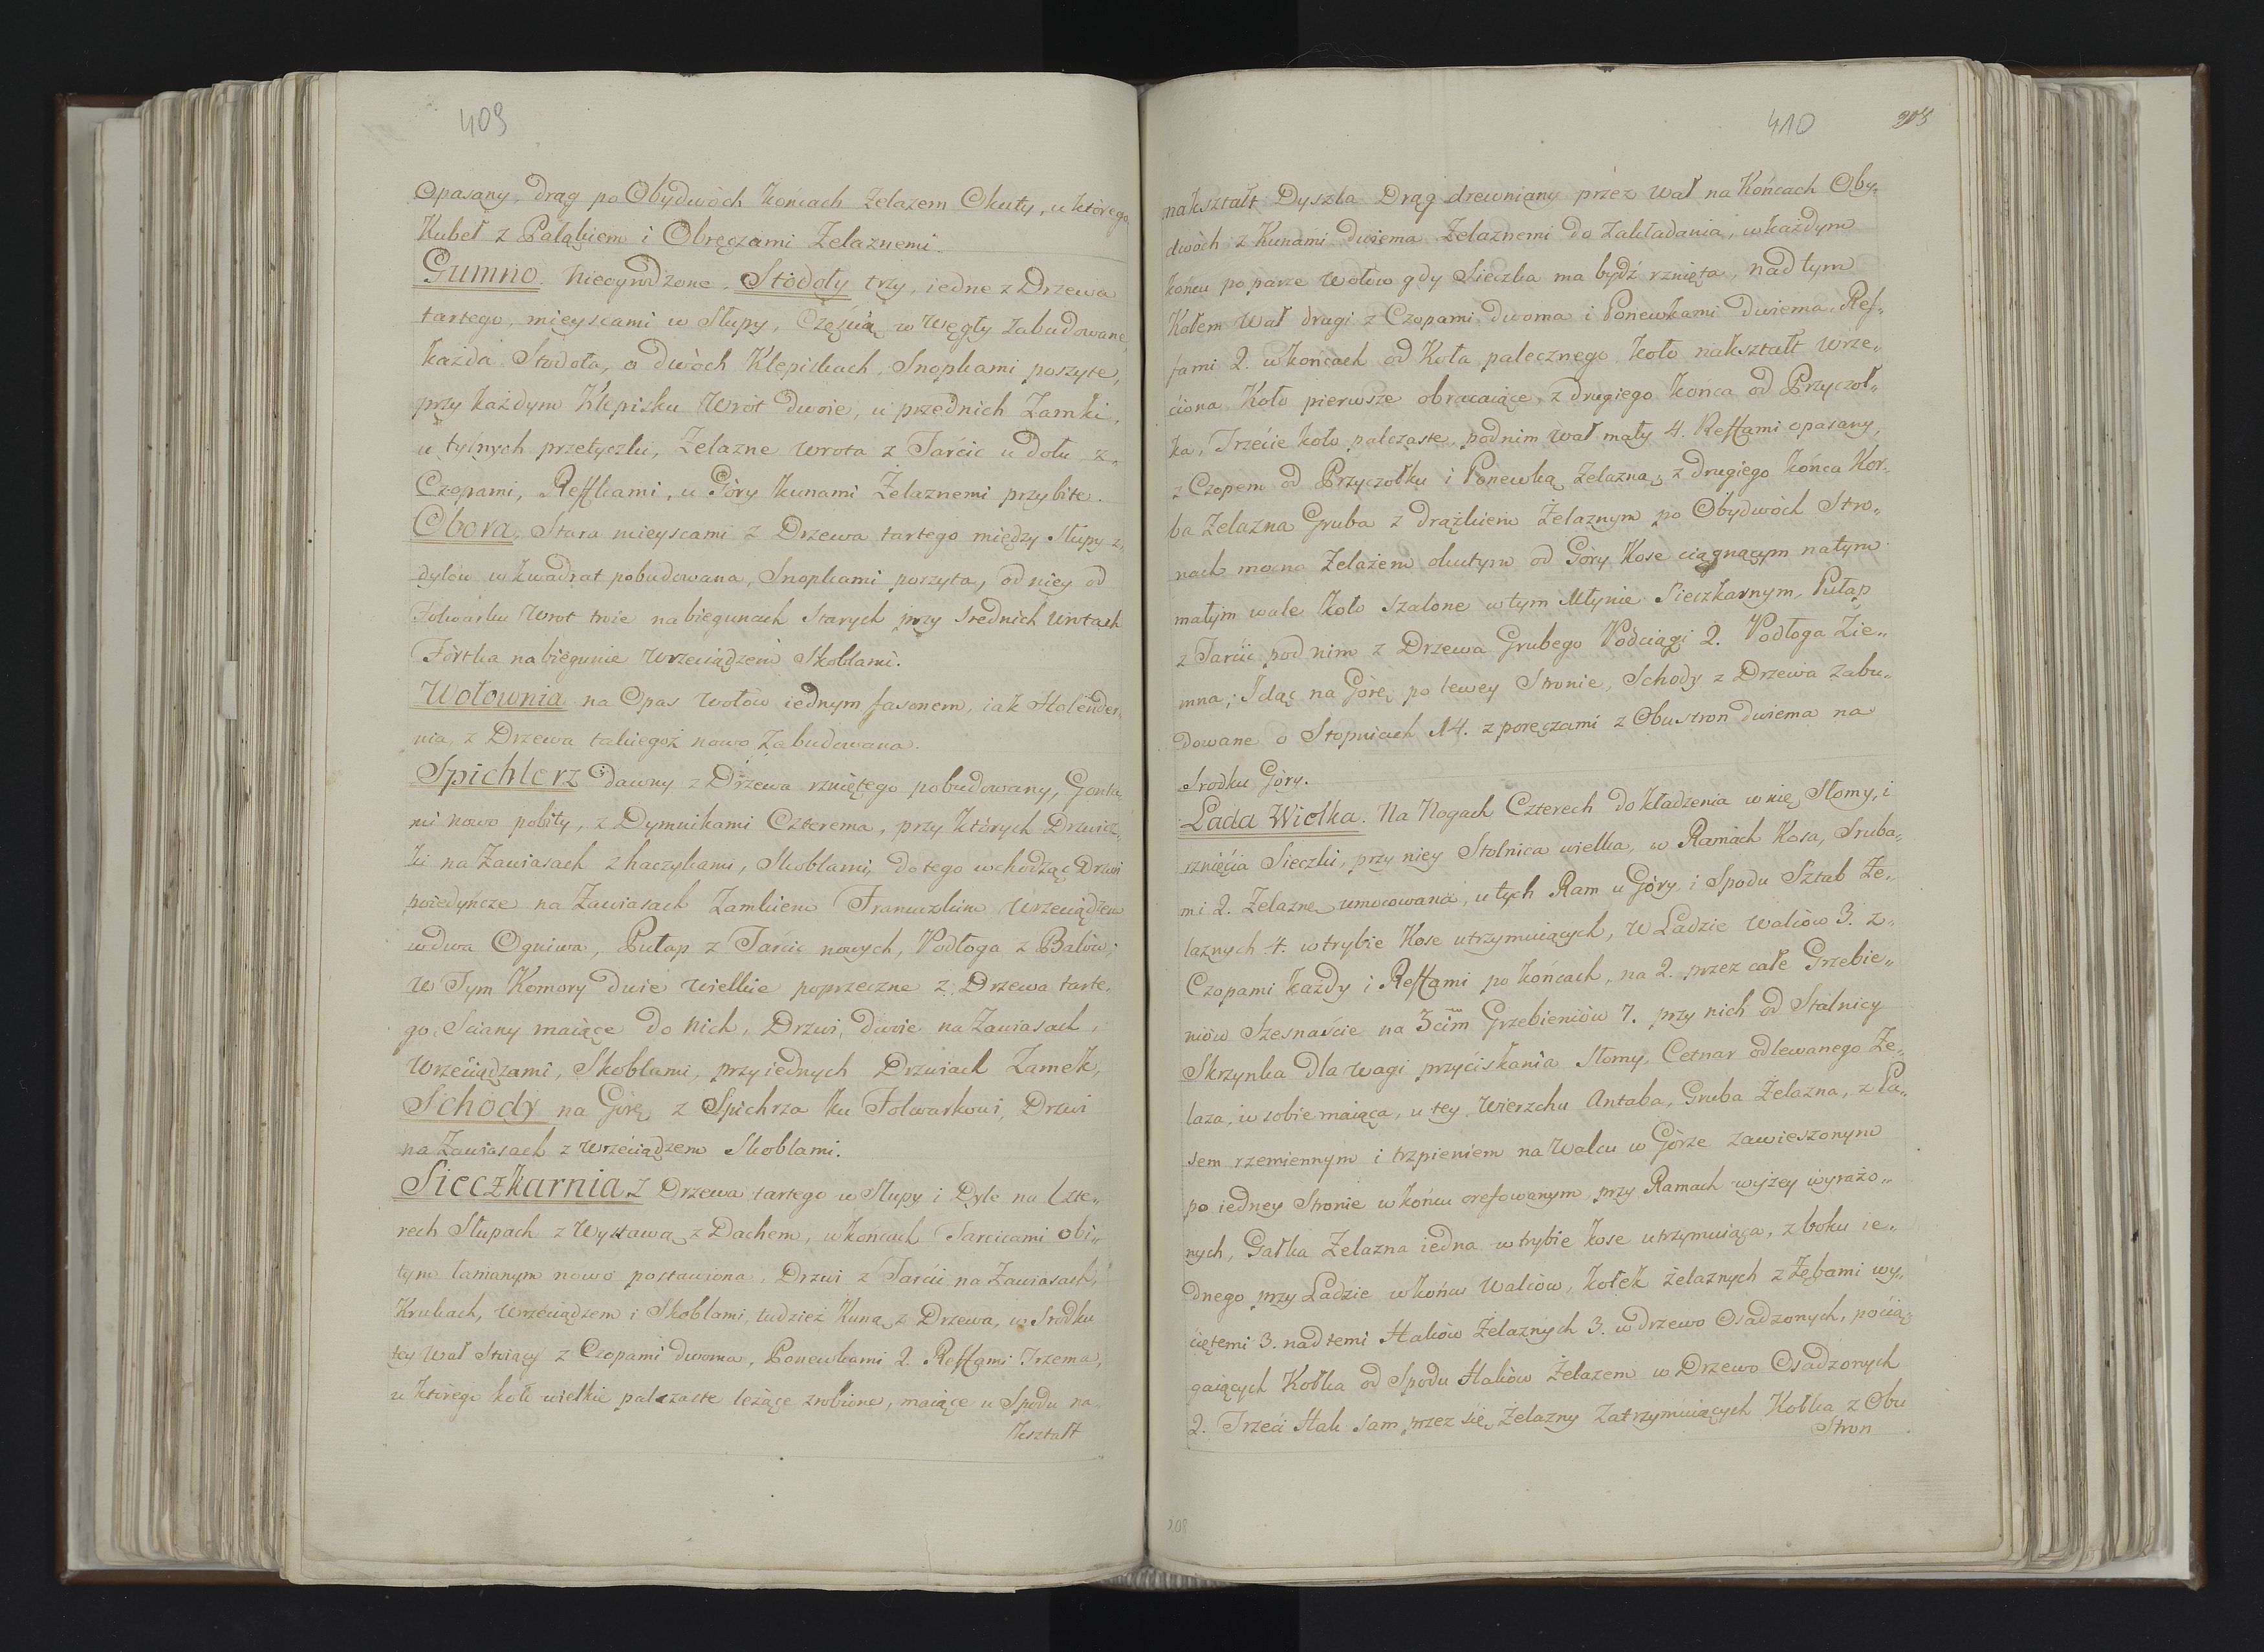 409
Opasany, drąg po Obydwòch końcach Żelazem Okuty, u ktòrego
Kubeł z Pałąkiem i Obręczami Żelaznemi.
Gumno. nieogrodzone. Stodoły trzy, iedne z Drzewa
tartego, mieyscami w Słupy, Częścią w Węgły zabudowane,
każda Stodoła, o dwòch Klepiskach, Snopkami poszyte,
przy każdym Klepisku Wròt dwoie, u przednich Zamki,
u tylnych przetyczki, Żelazne wrota z Tarcic u dołu z„
Czopami, Reffkami, u Gòry kunami Żelaznemi przybite.
Obora. Stara mieyscami z Drzewa tartego między Słupy z„
dylòw w kwadrat pobudowana, Snopkami poszyta, od niey od
Folwarku Wrot troie na biegunach Starych przy średnich Wrotach
Fòrtka na biegunie Wrzeciądzem Skoblami.
Wołownia na Opas Wołòw iednym fasonem, iak Holender„
nia, z Drzewa takiegoż nowo zabudowana.
Spichlerz dawny z Drzewa rzniętego pobudowany, Gonta„
mi nowo pobity, z Dymnikami Czterema, przy ktòrych Drzwicz„
ki na Zawiasach z haczykami, Skoblami, do tego wchodząc Drzwi
poiedyńcze na Zawiasach Zamkiem Francuzkim Wrzeciądzem
w dwa Ogniwa, Pułap z Tarcic nowych, Podłoga z Balòw;
w Tym Komory dwie wielkie poprzeczne z Drzewa tarte„
go, Sciany maiące do nich, Drzwi, dwoie na Zawiasach,
Wrzeciądzami, Skoblami, przy iednych Drzwiach Zamek,
Schody na Gòrę z Spichrza ku Folwarkowi, Drzwi
na Zawiasach z Wrzeciądzem Skoblami.
Sieczkarnia z Drzewa tartego w Słupy i Dyle na Czte„
rech Słupach z Wystawą z Dachem, w końcach Tarcicami obi„
tym łamanym nowo postawiona. Drzwi z Tarcic na Zawiasach,
Krukach, Wrzeciądzem i Skoblami, tudzież Kuną z Drzewa, w Srodku
tey Wał Stoiący z Czopami dwoma, Ponewkami 2. Reffami Trzema,
u ktòrego koło wielkie palczaste leżące zrobione, maiące u Spodu na„
kształt
410
nakształt Dyszla Drąg drewniany przez Wał na Końcach Oby„
dwòch z Kunami dwiema Żelaznemi do Zakładania, w każdym
końcu po parze Wołòw gdy Sieczka ma bydź rznięta, nad tym
Kołem Wał drugi z Czopami dwoma i Ponewkami dwiema, Ref„
fami 2. w końcach od Koła palecznego koło nakształt Wrze„
ciona Koło pierwsze obracaiące, z drugiego końca od Przyczoł„
ka, Trzecie koło palczaste, pod nim Wał mały 4. Reffami opasany,
z Czopem od Przyczołku i Ponewką Żelazną, z drugiego końca Kor„
ba Żelazna Gruba z drążkiem Żelaznym po Obydwòch Stro„
nach mocno Żelazem okutym od Gòry Kose ciągnącym na tym
małym wale koło szalone w tym Młynie Sieczkarnym, Pułap
z Tarcic pod nim z Drzewa Grubego Podciągi 2. Podłoga Zie„
mna; Idąc na Gòrę po lewey Stronie, Schody z Drzewa Zabu„
dowane o Stopniach 14. z poręczami z Obustron dwiema na
Srodku Gòry.
Lada Wielka. Na Nogach Czterech do kładzenia w nię Słomy, i
rznięcia Sieczki, przy niey Stolnica wielka, w Ramach Kosa, Sruba„
mi 2. Żelazne umocowana, u tych Ram u Gòry i Spodu Sztab Że„
laznych 4. w trybie Kose utrzymuiących, W Ladzie Walcòw 3. z„
Czopami każdy i Reffami po końcach, na 2. przez całe Grzebie„
niòw Szesnaście na 3cim Grzebieniòw 7. przy nich od Stalnicy
Skrzynka dla wagi przyciskania Słomy, Cetnar odlewanego Że„
laza, w sobie maiąca, u tey Wierzchu Antaba, Gruba Żelazna, z Pa„
sem rzemiennym i trzpieniem na Walcu w Gòrze zawieszonym
po iedney Stronie w końcu orefowanym przy Ramach wyżey wyrażo„
nych, Gałka Żelazna iedna w trybie kose utrzymuiąca, z boku ie„
dnego przy Ladzie w końcu Walcòw, kołek żelaznych z Zębami wy„
ciętemi 3. nad temi Hakòw Żelaznych 3. w drzewo Osadzonych, pocią„
gaiących Kołka od Spodu Hakòw Żelazem w Drzewo Osadzonych
2. Trzeci Hak sam przez się Żelazny Zatrzymuiących Kołka z Obu
Stron
208